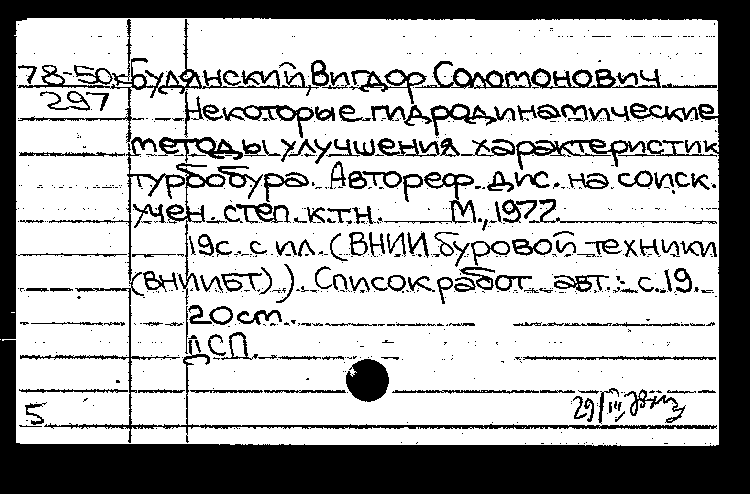 78-50к Будянский, Вигдор Соломонович
297
Некоторые гидродинамические
методы улучшения характеристик
турбобура. Автореф. дис. на соиск.
учен. степ. к.т.н. М., 1977.
19с. с ил. (ВНИИ буровой техники
(ВНИИБТ)). Список работ авт.: с. 19.
20 cm.
ДСП.
5 29/III 78